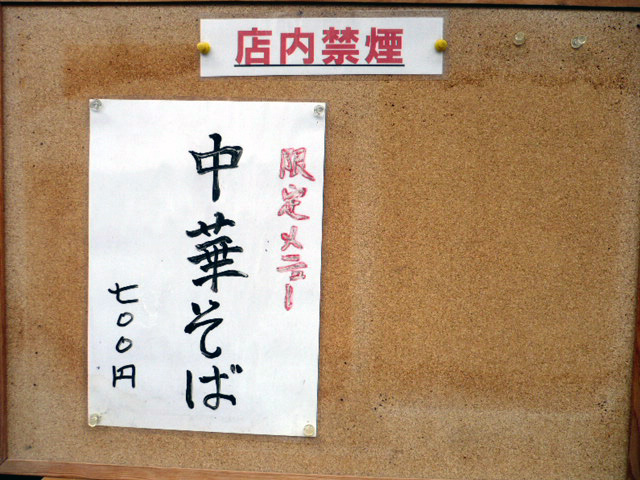 店内禁煙
限定メニュー
中華そば
七〇〇円